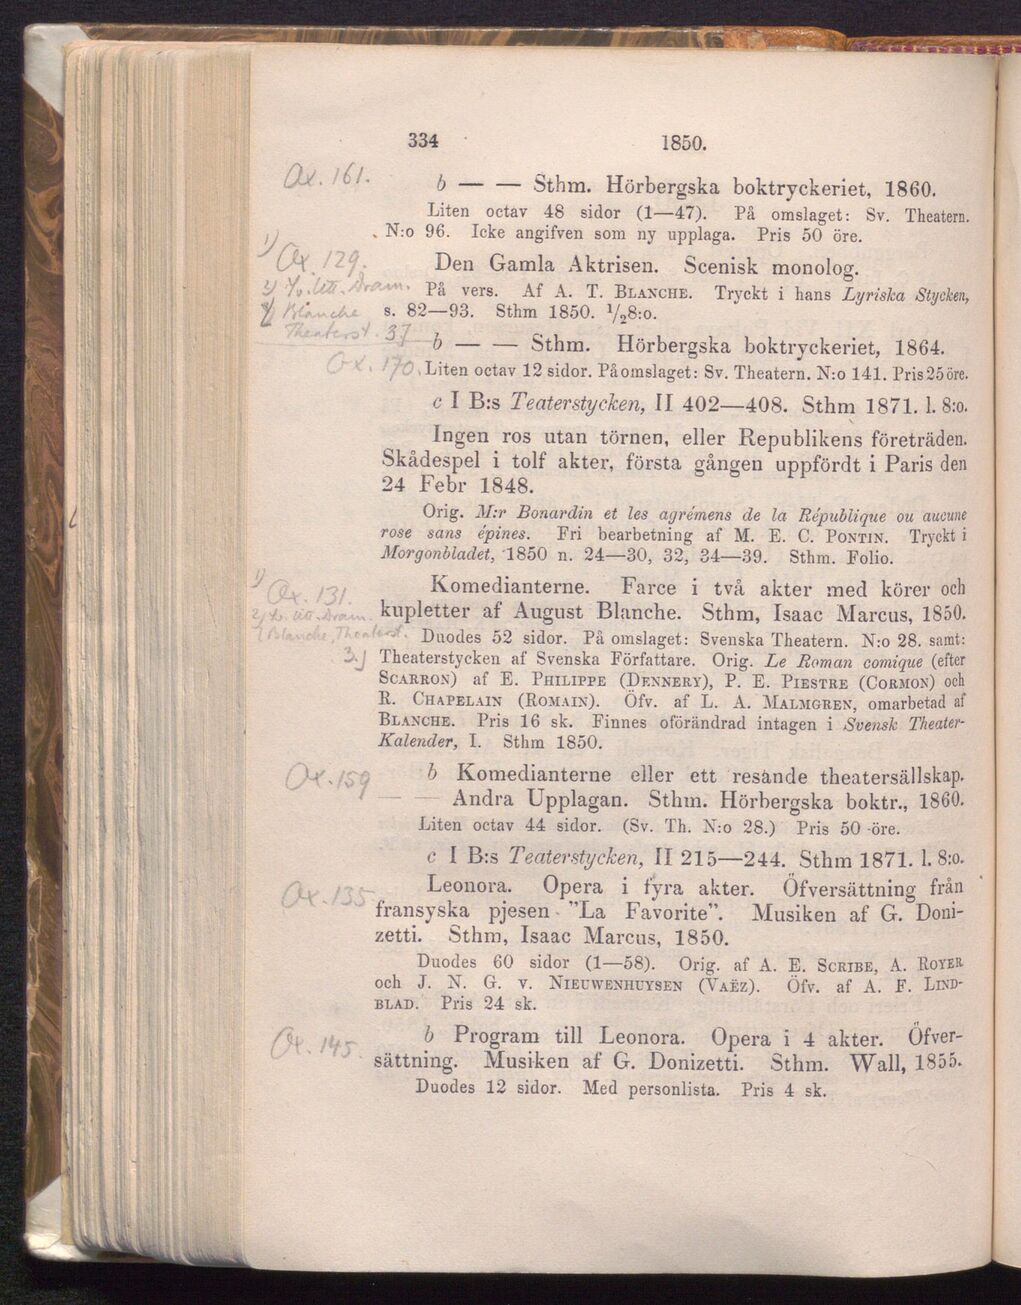 334 1850.
Ox. 161.
b — — Sthm. Hörbergska boktryckeriet, 1860.
Liten octav 48 sidor (1—47). På omslaget: Sv. Theatern.
N:o 96. Icke angifven som ny upplaga. Pris 50 öre.
1) Ox. 129.
Den Gamla Aktrisen. Scenisk monolog.
På vers. Af A. T. BLANCHE. Tryckt i hans Lyriska Stycken,
s. 82—93. Sthm 1850. 1/28:o.
Blanche
Theaterst. 3]
b — — Sthm. Hörbergska boktryckeriet, 1864.
Ox. 170.
Liten octav 12 sidor. På omslaget: Sv. Theatern. N:o 141. Pris 25 öre.
c I B:s Teaterstycken, II 402—408. Sthm 1871. l. 8:o.
Ingen ros utan törnen, eller Republikens företräden.
Skådespel i tolf akter, första gången uppfördt i Paris den
24 Febr 1848.
Orig. M:r Bonardin et les agrémens de la République ou aucune
rose sans épines. Fri bearbetning af M. E. C. PONTIN. Tryckt i
Morgonbladet, 1850 n. 24—30, 32, 34—39. Sthm. Folio.
1) Ox. 131.
Komedianterne. Farce i två akter med körer och
kupletter af August Blanche. Sthm, Isaac Marcus, 1850.
Blanche, Theaterst. 3.]
Duodes 52 sidor. På omslaget: Svenska Theatern. N:o 28. samt:
Theaterstycken af Svenska Författare. Orig. Le Roman comique (efter
SCARRON) af E. PHILIPPE (DENNERY), P. E. PIESTRE (CORMON) och
R. CHAPELAIN (ROMAIN). Öfv. af L. A. MALMGREN, omarbetad af
BLANCHE. Pris 16 sk. Finnes oförändrad intagen i Svensk Theater-
Kalender, I. Sthm 1850.
Ox. 159
b Komedianterne eller ett resande theatersällskap.
— — Andra Upplagan. Sthm. Hörbergska boktr., 1860.
Liten octav 44 sidor. (Sv. Th. N:o 28.) Pris 50 öre.
c I B:s Teaterstycken, II 215—244. Sthm 1871. l. 8:o.
Ox. 135
Leonora. Opera i fyra akter. Öfversättning från
fransyska pjesen "La Favorite". Musiken af G. Doni-
zetti. Sthm, Isaac Marcus, 1850.
Duodes 60 sidor (1—58). Orig. af A. E. SCRIBE, A. ROYER
och J. N. G. v. NIEUWENHUYSEN (VAËZ). Öfv. af A. F. LIND-
BLAD. Pris 24 sk.
Ox. 145.
b Program till Leonora. Opera i 4 akter. Öfver-
sättning. Musiken af G. Donizetti. Sthm. Wall, 1855.
Duodes 12 sidor. Med personlista. Pris 4 sk.